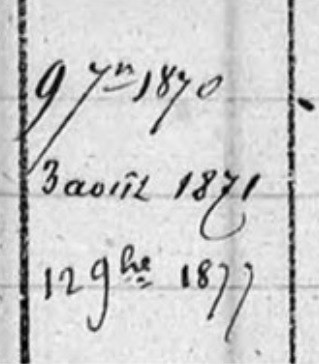 9 7re 1870
3 août 1871
12 9bre 1877